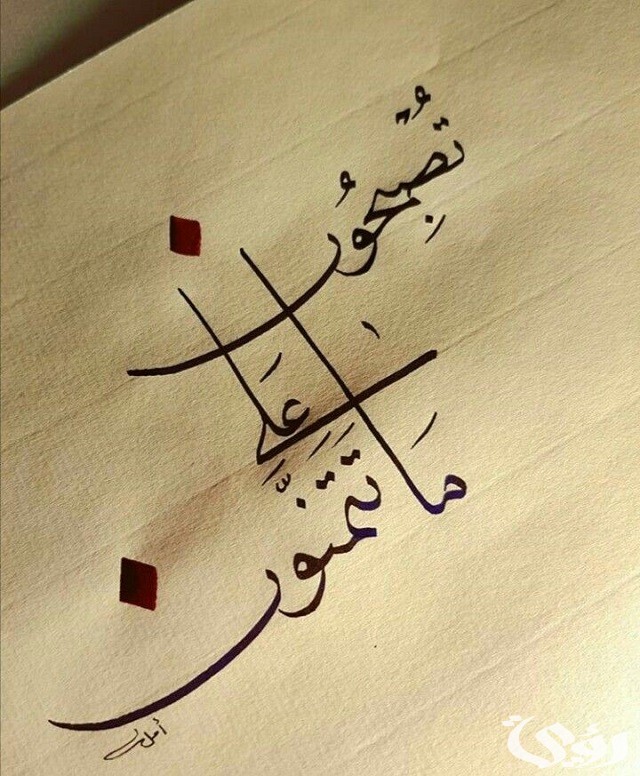 تُصْبِحُون
عَلَى
مَا تَتَمَنَّون
أمل